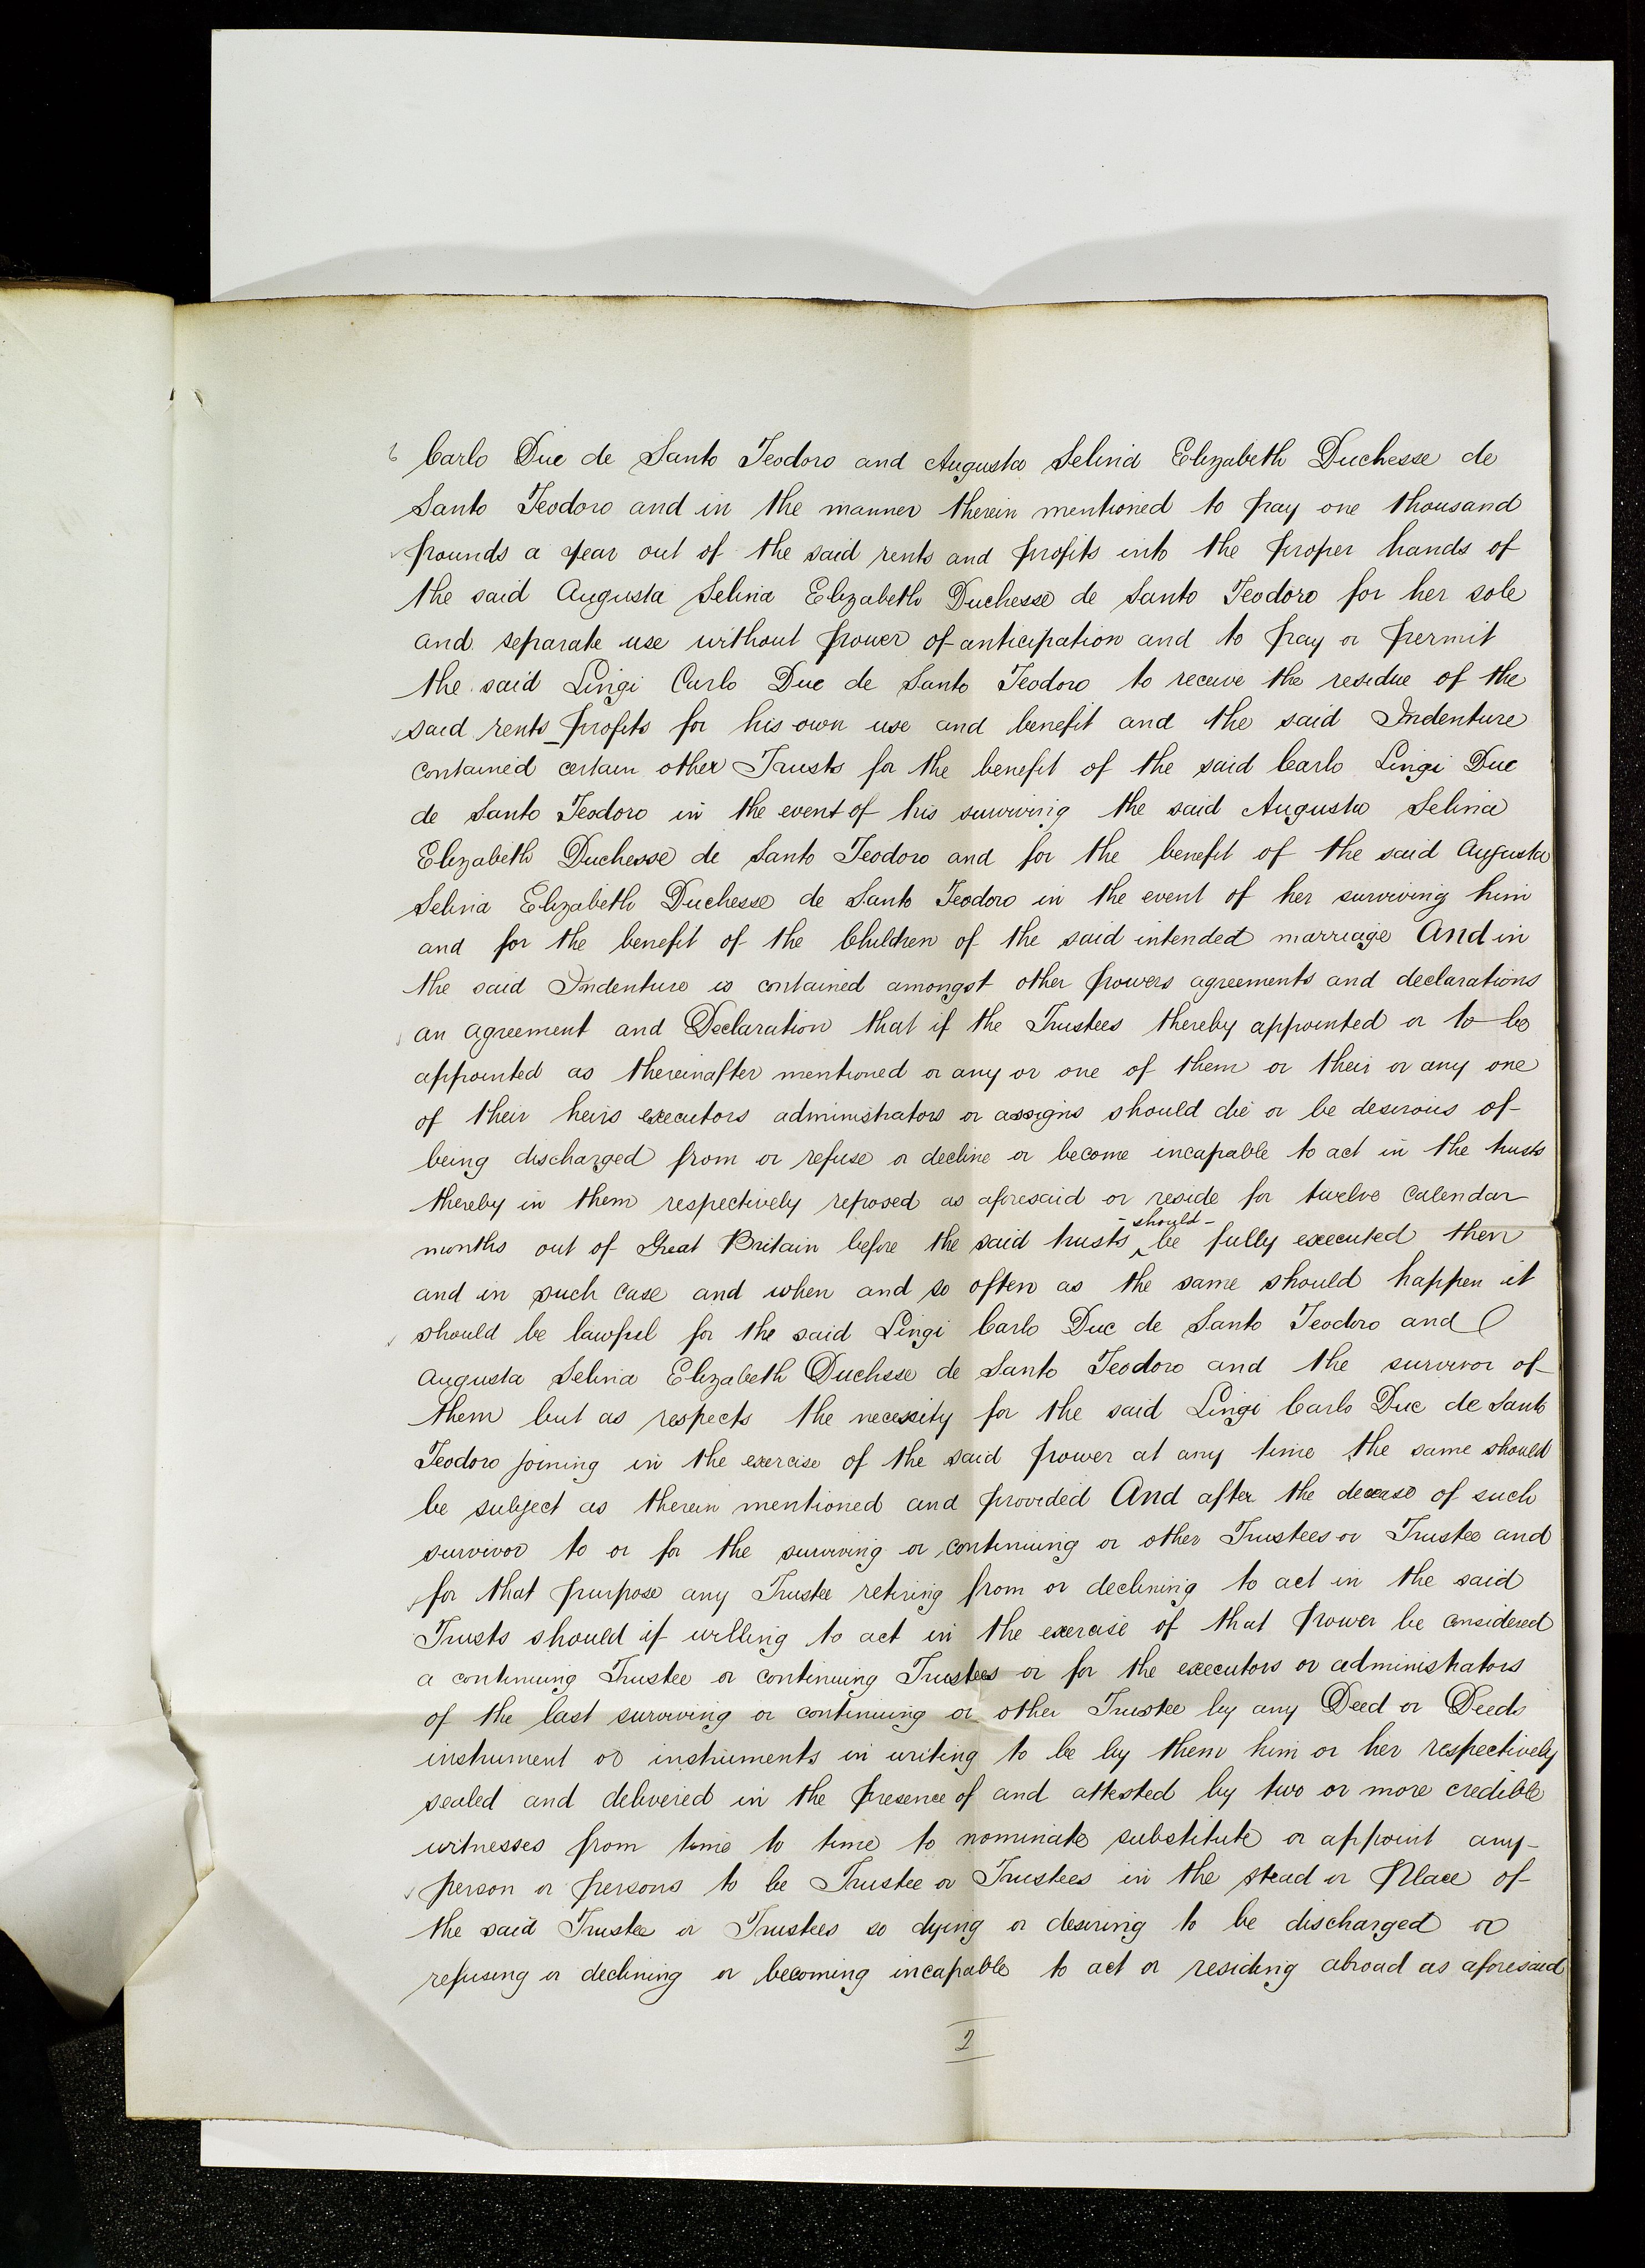 Carlo Duc de Santo Teodoro and Augusta Selina Elizabeth Duchesse de
Santo Teodoro and in the manner therein mentioned to pay one thousand
pounds a year out of the said rents and profits into the proper hands of
the said Augusta Selina Elizabeth Duchesse de Santo Teodoro for her sole
and separate use without power of anticipation and to pay or permit
the said Lingi Carlo Duc de Santo Teodoro to receive the residue of the
said rents profits for his own use and benefit and the said Indenture
contained certain other Trusts for the benefit of the said Carlo Lingi Duc
de Santo Teodoro in the event of his surviving the said Augusta Selina
Elizabeth Duchesse de Santo Teodoro and for the benefit of the said Augusta
Selina Elizabeth Duchesse de Santo Teodoro in the event of her surviving him
and for the benefit of the Children of the said intended marriage And in
the said Indenture is contained amongst other powers agreements and declarations
an agreement and Declaration that if the Trustees thereby appointed or to be
appointed as thereinafter mentioned or any or one of them or their or any one
of their heirs executors administrators or assigns should die or be desirous of
being discharged from or refuse or decline or become incapable to act in the trusts
thereby in them respectively reposed as aforesaid or reside for twelve Calendar
months out of Great Britain before the said trusts should be fully executed then
and in such case and when and so often as the same should happen it
should be lawful for the said Lingi Carlo Duc de Santo Teodoro and
Augusta Selina Elizabeth Duchsse de Santo Teodoro and the survivor of
them but as respects the necessity for the said Lingi Carlo Duc de Santo
Teodoro joining in the exercise of the said power at any time the same should
be subject as therein mentioned and provided And after the decease of such
survivor to or for the surviving or continuing or other Trustees or Trustee and
for that purpose any Trustee retiring from or declining to act in the said
Trusts should if willing to act in the exercise of that power be considered
a continuing Trustee or continuing Trustees or for the executors or administrators
of the last surviving or continuing or other Trustee by any Deed or Deeds
instrument or instruments in writing to be by them him or her respectively
sealed and delivered in the presence of and attested by two or more credible
witnesses from time to time to nominate substitute or appoint any
person or persons to be Trustee or Trustees in the stead or Place of
the said Trustee or Trustees so dying or desiring to be discharged or
refusing or declining or becoming incapable to act or residing abroad as aforesaid
2